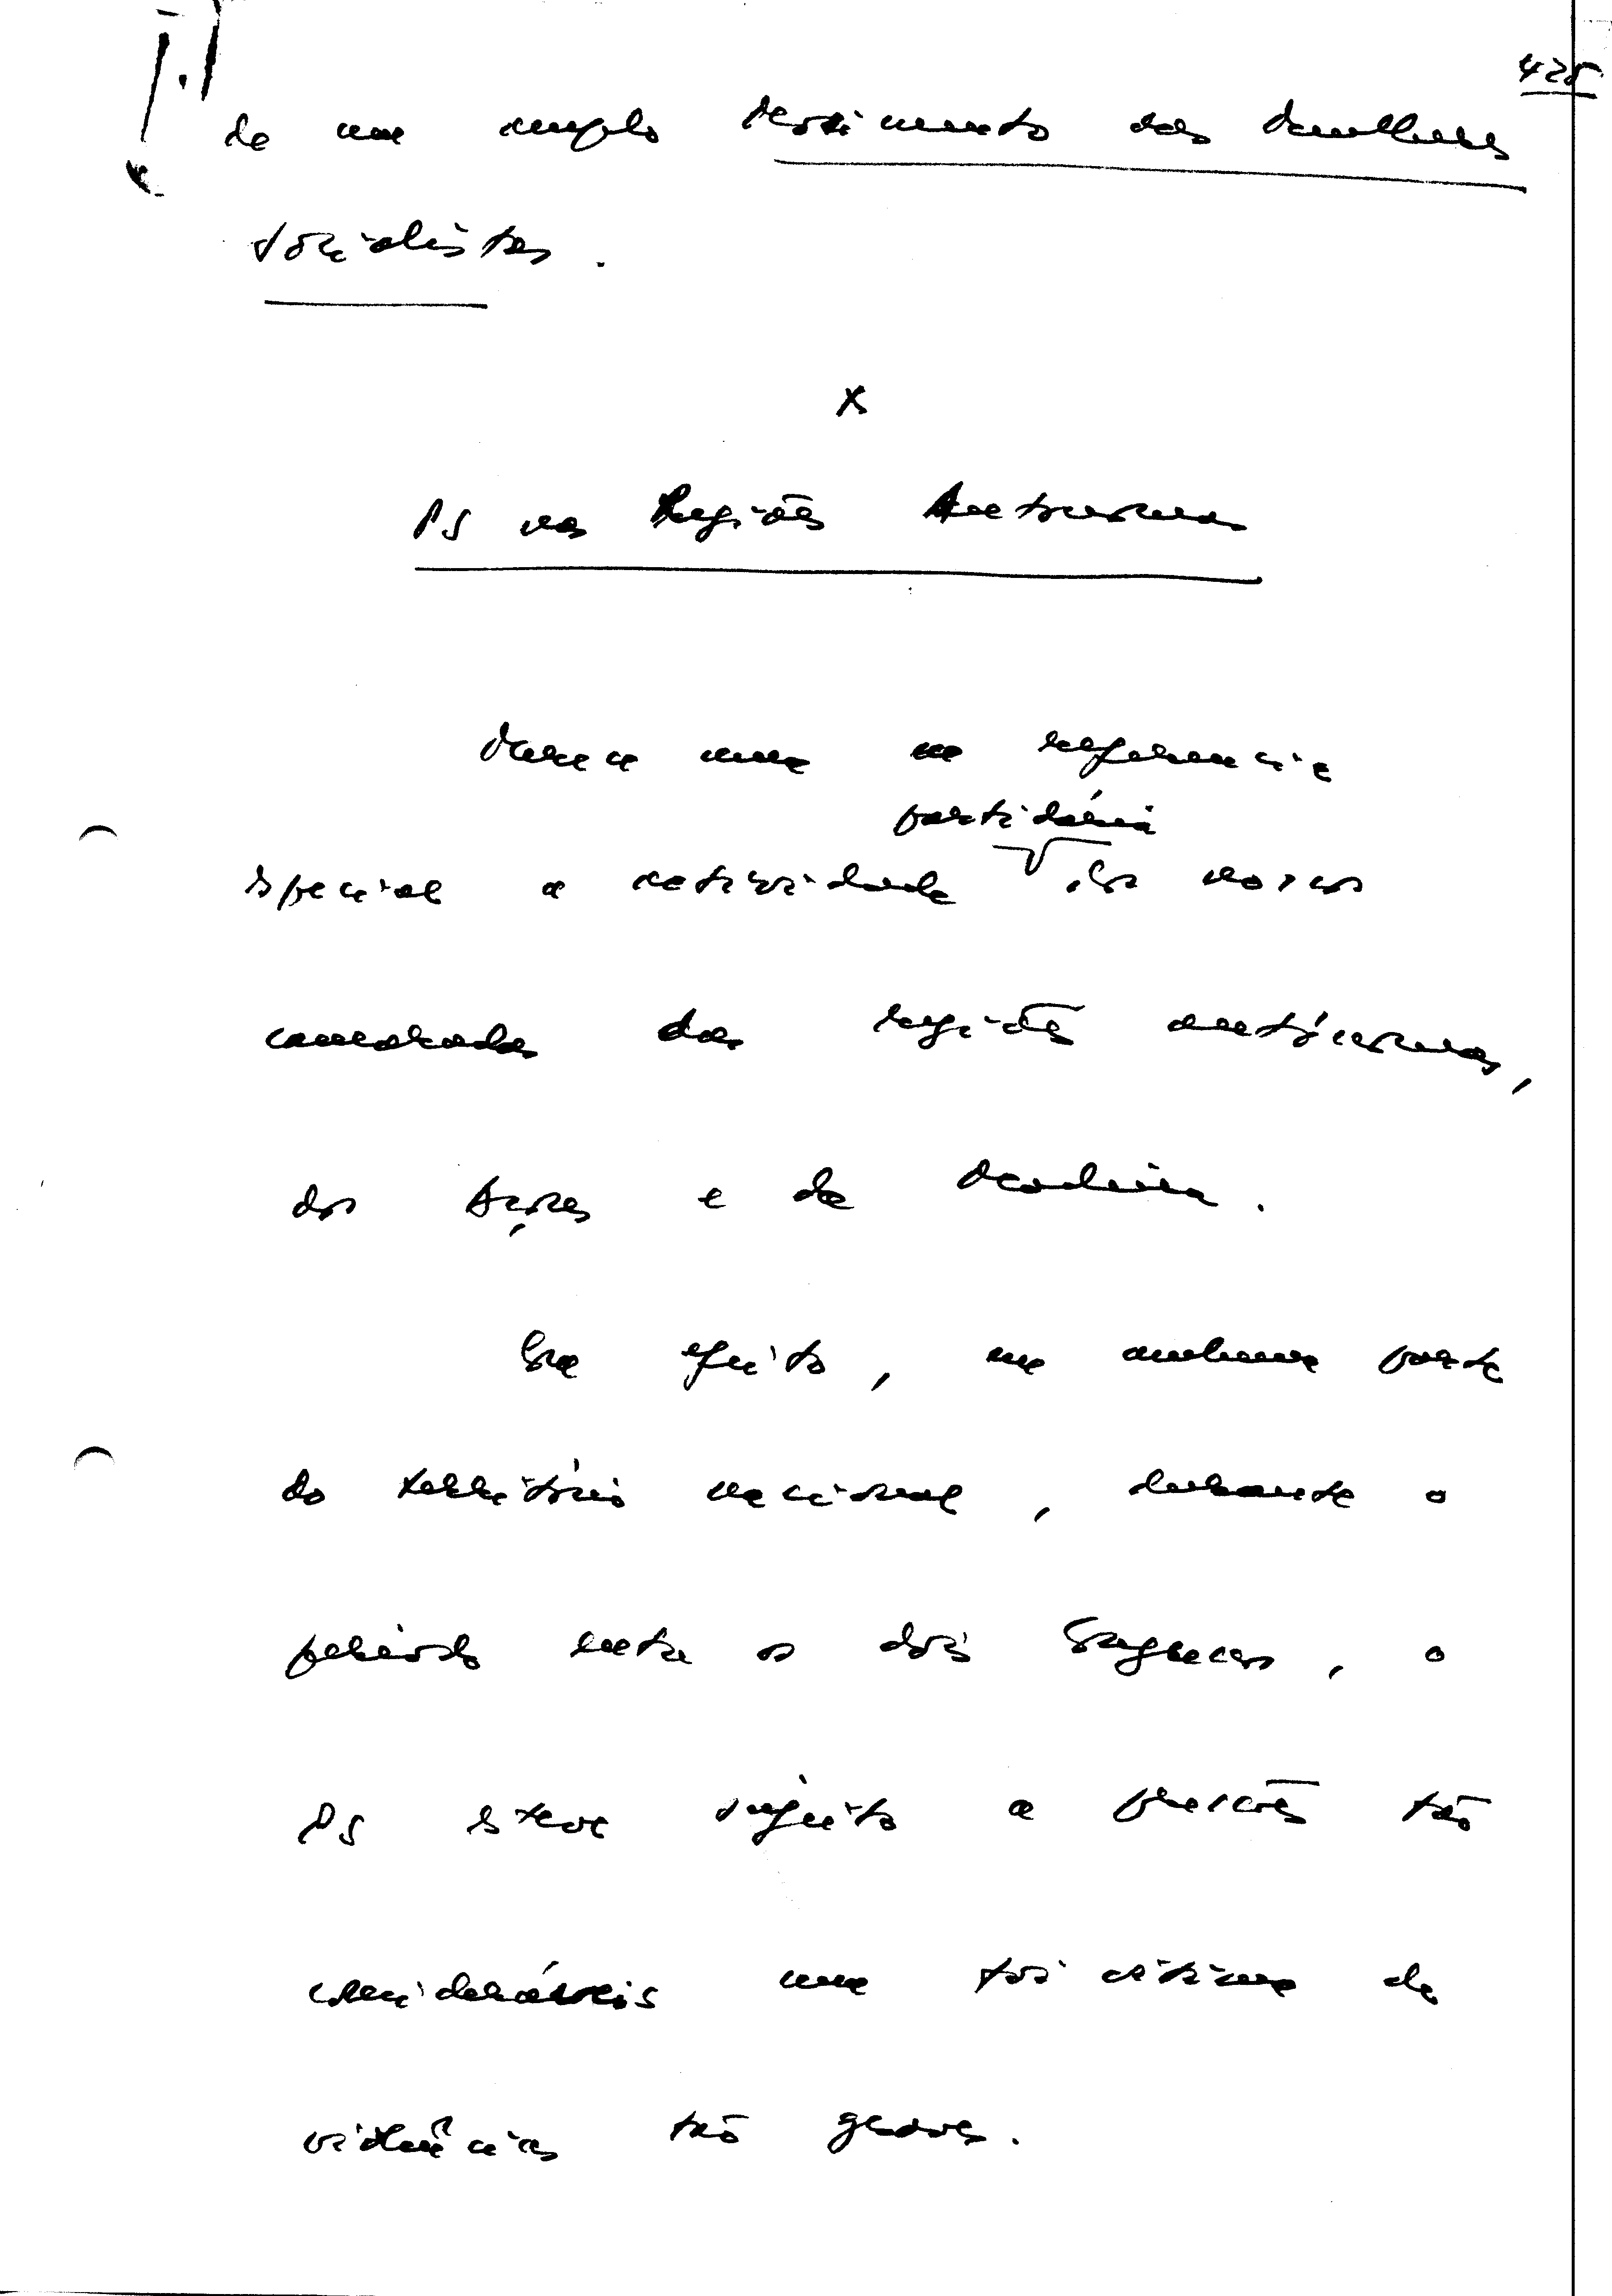 425
de um amplo movimento das mulheres
socialistas.
x
PS nas Regiões Autónomas
Merece uma referência
partidária
especial a actividade dos nossos
camaradas das regiões autónomas,
dos Açores e da Madeira.
Com efeito, em nenhuma parte
do território nacional, durante o
período entre os dois Congressos, o
PS esteve sujeito a pressões tão
consideráveis nem foi vítima de
violências tão graves.